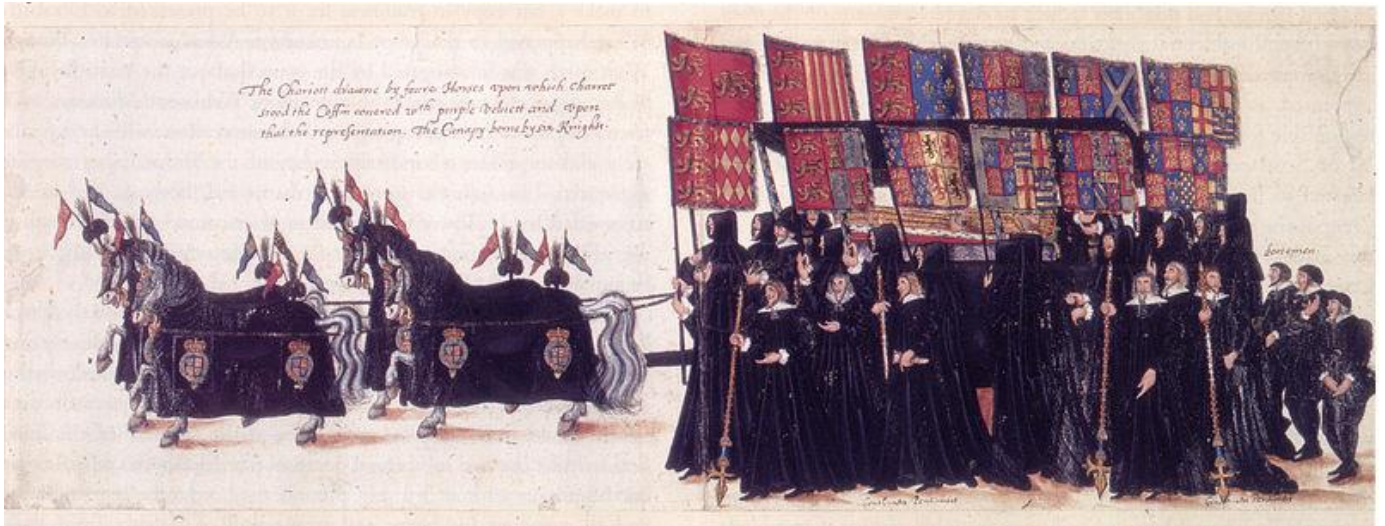 The Chariott drawne by foure Horses vpon which Charret
stood the Coffin couered wth purple Veluett and vpon
that the representation. The Canapy borne by six Knights.
Gentlemen Pentioners